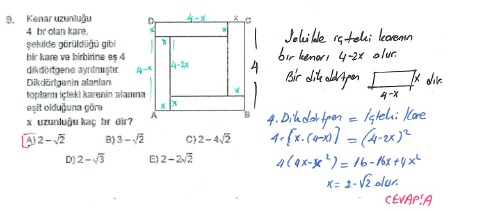 9. Kenar uzunluğu
4 br olan kare,
şekilde görüldüğü gibi
bir kare ve birbirine eş 4
dikdörtgene ayrılmıştır.
Dikdörtgenin alanları
toplamı içteki karenin alanına
eşit olduğuna göre
x uzunluğu kaç br dir?
A) 2 – √2 B) 3 – √2 C) 2 – 4√2
D) 2 – √3 E) 2 – 2√2
D 4-x x C
x x
4-x 4-2x 4
x x
A B
Şekilde içteki karenin
bir kenarı 4-2x olur.
Bir dikdörtgen x dir.
4-x
4. Dikdörtgen = İçteki Kare
4.[x.(4-x)] = (4-2x)²
4(4x-x²) = 16-16x+4x²
x = 2-√2 olur.
CEVAP:A